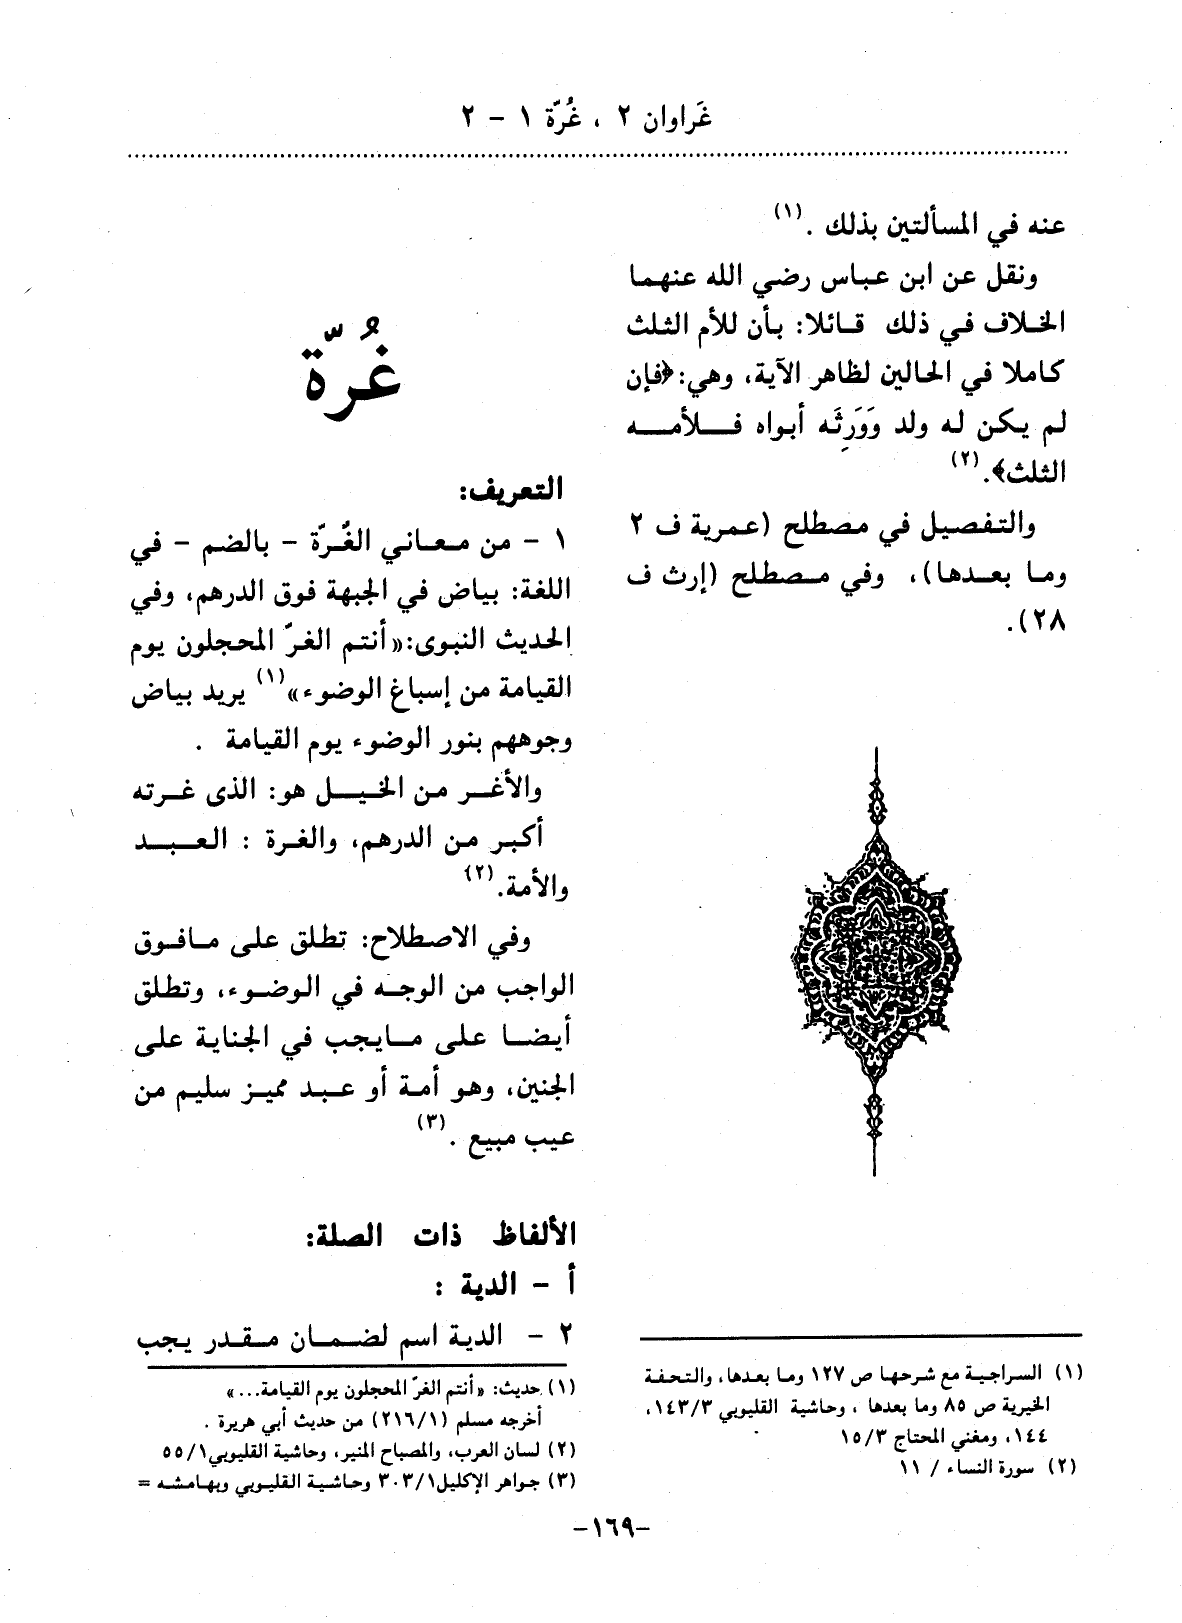 غَراوان ٢ ، غُرّة ١ - ٢
عنه في المسألتين بذلك .(١)
ونقل عن ابن عباس رضي الله عنهما
الخلاف في ذلك قائلا: بأن للأم الثلث
كاملا في الحالين لظاهر الآية، وهي:﴿فإن
لم يكن له ولد وَوَرِثَه أبواه فلأمه
الثلث﴾.(٢)
والتفصيل في مصطلح (عمرية ف ٢
وما بعدها)، وفي مصطلح (إرث ف
٢٨).
(١) السراجية مع شرحها ص ١٢٧ وما بعدها، والتحفة
الخيرية ص ٨٥ وما بعدها ، وحاشية القليوبي ١٤٣/٣،
١٤٤، ومغني المحتاج ١٥/٣
(٢) سورة النساء / ١١
غُرّة
التعريف:
١ - من معاني الغُرّة - بالضم - في
اللغة: بياض في الجبهة فوق الدرهم، وفي
الحديث النبوى:«أنتم الغرّ المحجلون يوم
القيامة من إسباغ الوضوء»(١) يريد بياض
وجوههم بنور الوضوء يوم القيامة .
والأغر من الخيل هو: الذى غرته
أكبر من الدرهم، والغرة : العبد
والأمة.(٢)
وفي الاصطلاح: تطلق على مافوق
الواجب من الوجه في الوضوء، وتطلق
أيضا على مايجب في الجناية على
الجنين، وهو أمة أو عبد مميز سليم من
عيب مبيع .(٣)
الألفاظ ذات الصلة:
أ - الدية :
٢ - الدية اسم لضمان مقدر يجب
(١) حديث: «أنتم الغرّ المحجلون يوم القيامة...»
أخرجه مسلم (٢١٦/١) من حديث أبي هريرة .
(٢) لسان العرب، والمصباح المنير، وحاشية القليوبي٥٥/١
(٣) جواهر الإكليل٣٠٣/١ وحاشية القليوبي وبهامشه =
-١٦٩-